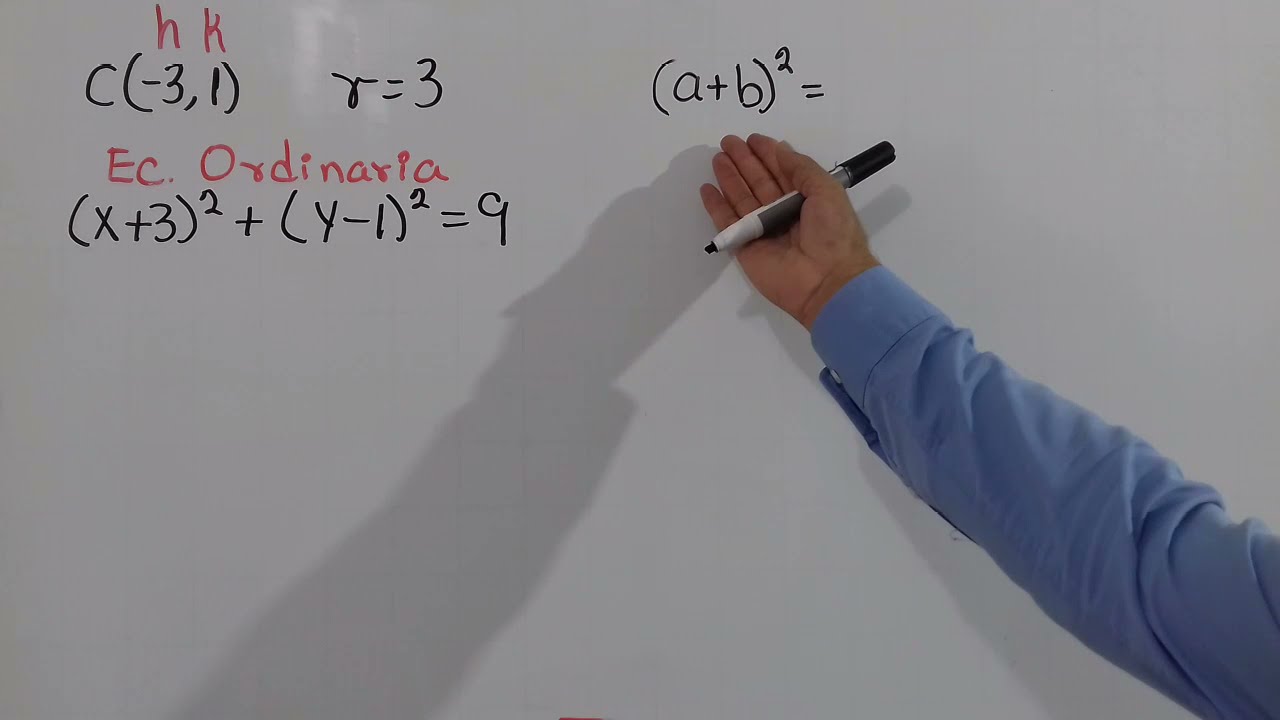 h k
C(-3,1) r=3
Ec. Ordinaria
(x+3)² + (y-1)² = 9
(a+b)² =